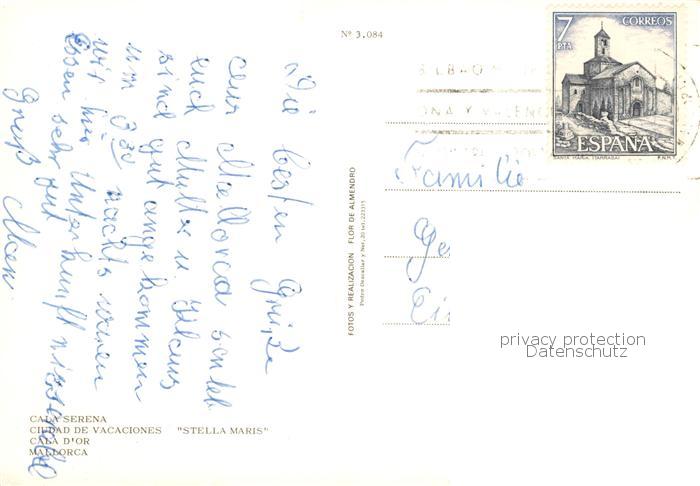 Nº 3.084
7
PTA
CORREOS
ESPAÑA
SANTA MARIA (TARRASA)
F.N.M.T.
Die besten Grüße
aus Mallorca sendet
euch Mutter u.
sind gut angekommen
um 3 30 nachts waren
wir hier Unterkunft
Essen sehr gut
Gruß
Familie
Ge
Ei
privacy protection
Datenschutz
FOTOS Y REALIZACION FLOR DE ALMENDRO
CALA SERENA
CIUDAD DE VACACIONES "STELLA MARIS"
CALA D'OR
MALLORCA